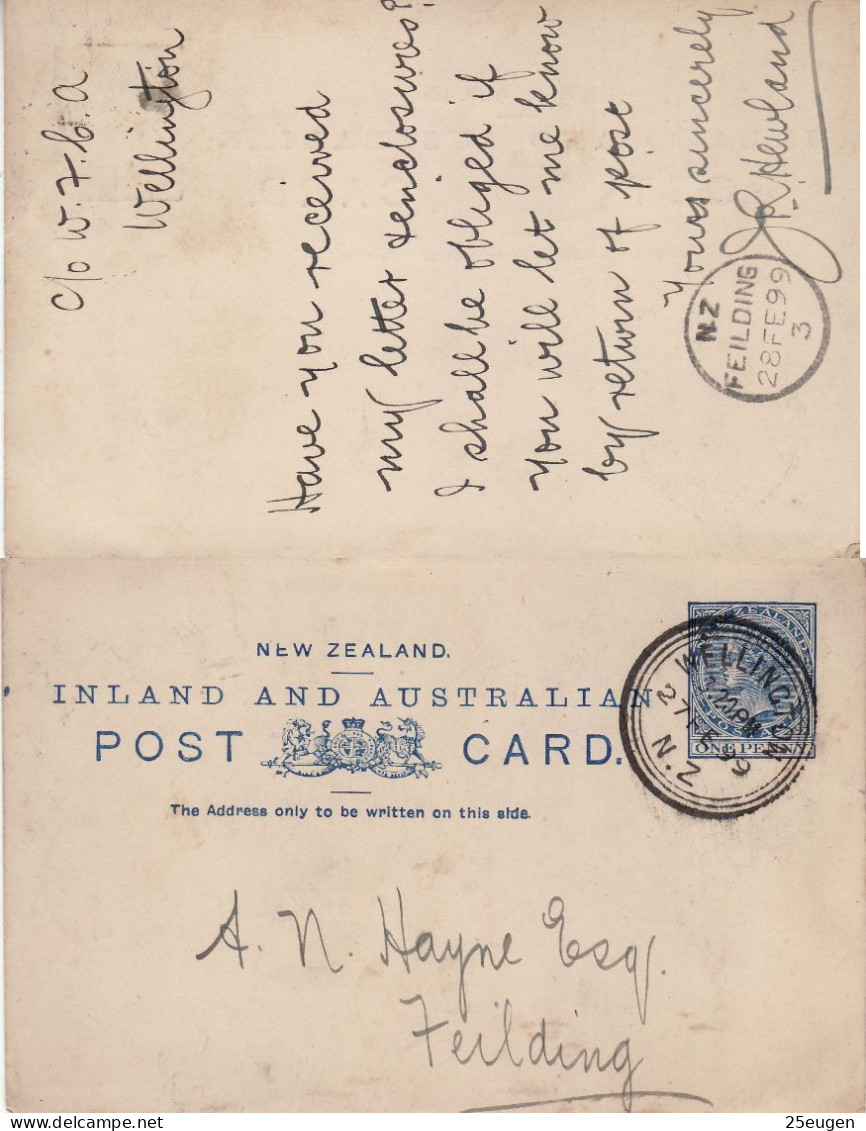 c/o W.F.C.A
Wellington
Have you received
my letter & enclosures?
I shall be obliged if
you will let me know
by return of post
Yours sincerely
Hewland
N.Z
FEILDING
28FE99
3
NEW ZEALAND.
INLAND AND AUSTRALIAN
POST CARD.
The Address only to be written on this side.
ZEALAND
POSTAGE
ONE PENNY
WELLINGTON
2
27FE99
N.Z
A. N. Hayne Esq.
Feilding
25eugen